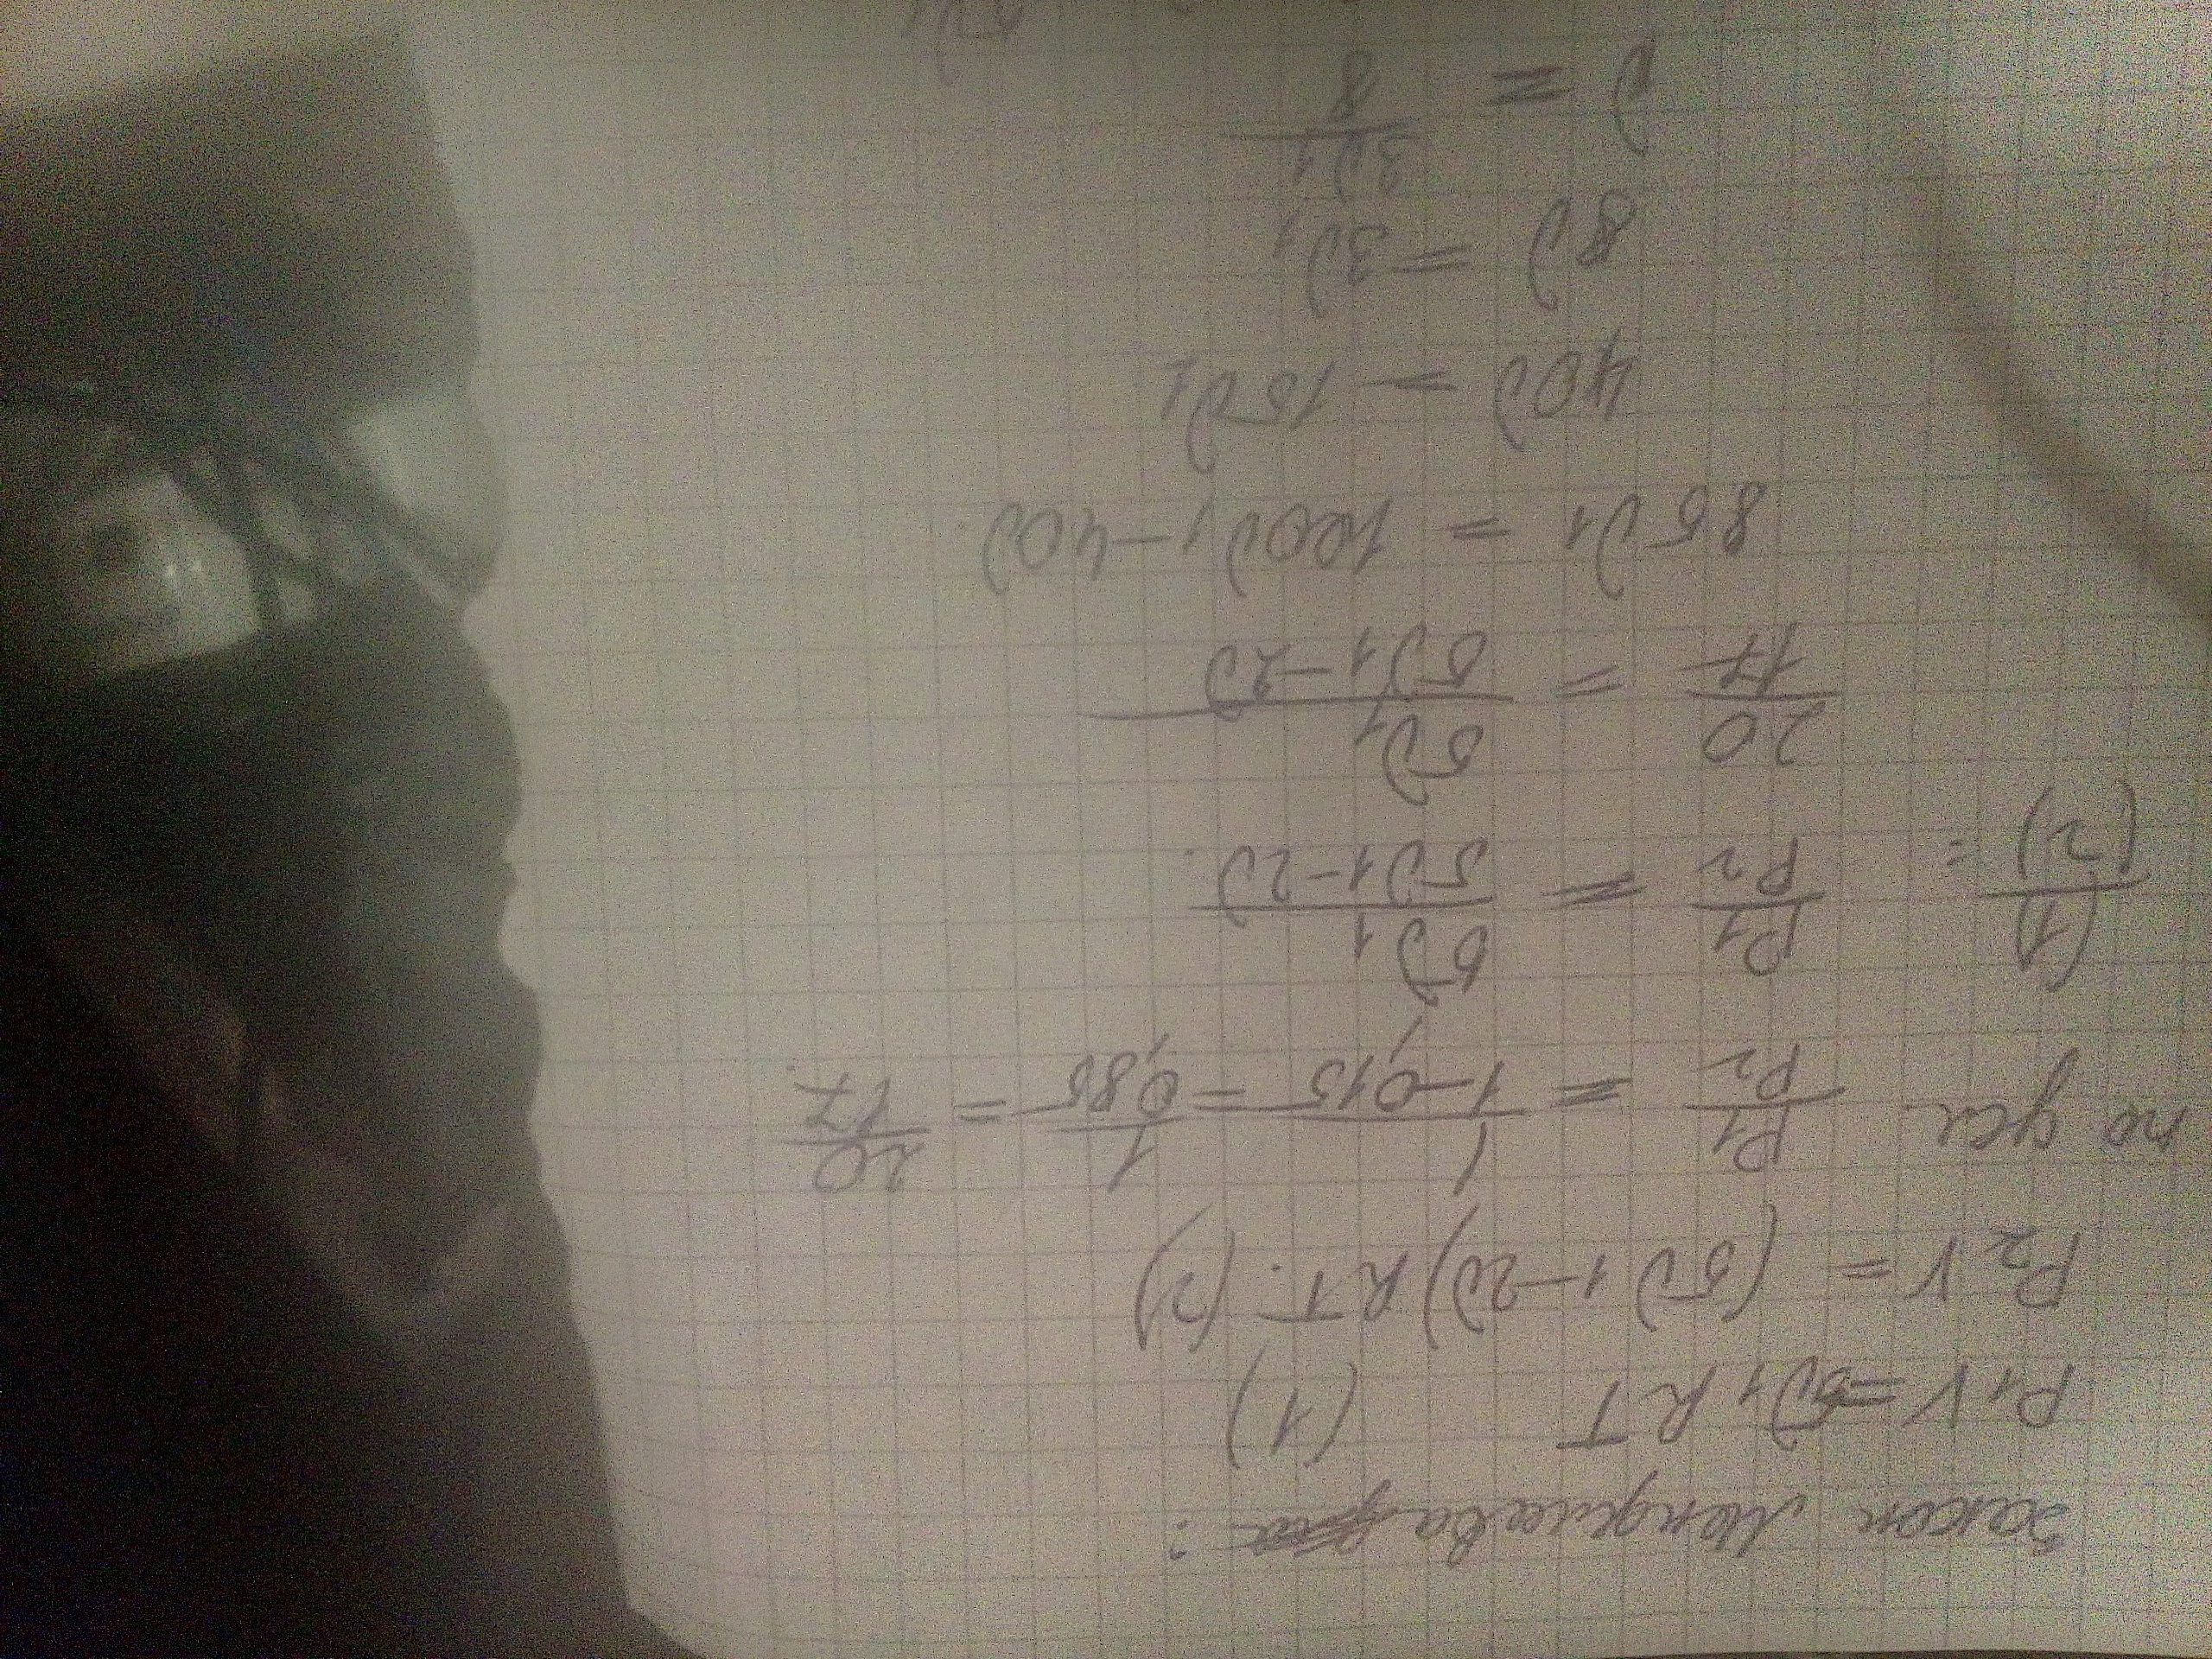 закон Менделеева :
P₁V = 5ν₁RT (1)
P₂V = (5ν₁-2ν)RT. (2)
по усл P₁/P₂ = 1/(1-0,15) = 1/0,85 = 20/17.
(1)/(2) : P₁/P₂ = 5ν₁/(5ν₁-2ν).
20/17 = 5ν₁/(5ν₁-2ν)
85ν₁ = 100ν₁-40ν.
40ν = 15ν₁
8ν = 3ν₁
ν = 3ν₁/8